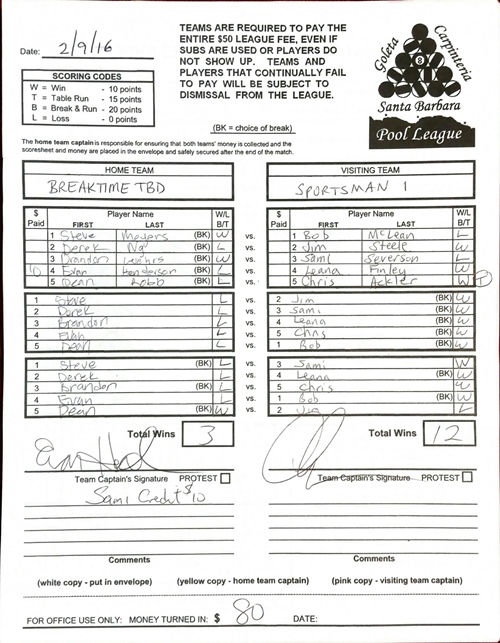 Date: 2/9/16
TEAMS ARE REQUIRED TO PAY THE
ENTIRE $50 LEAGUE FEE, EVEN IF
SUBS ARE USED OR PLAYERS DO
NOT SHOW UP. TEAMS AND
PLAYERS THAT CONTINUALLY FAIL
TO PAY WILL BE SUBJECT TO
DISMISSAL FROM THE LEAGUE.
SCORING CODES
W = Win - 10 points
T = Table Run - 15 points
B = Break & Run - 20 points
L = Loss - 0 points
(BK = choice of break)
Goleta Carpinteria
8
Santa Barbara
Pool League
The home team captain is responsible for ensuring that both teams' money is collected and the
scoresheet and money are placed in the envelope and safely secured after the end of the match.
HOME TEAM VISITING TEAM
BREAKTIME TBD SPORTSMAN 1
$ Paid Player Name FIRST LAST W/L B/T $ Paid Player Name FIRST LAST W/L B/T
1 Steve (BK) W vs. 1 Bob McLean L
2 Derek Ng (BK) L vs. 2 Jim Steele W
3 Brandon (BK) W vs. 3 Sami Severson L
10 4 Evan Henderson (BK) L vs. 4 Leana Finley W
5 Dean Robb (BK) L vs. 5 Chris Ackler W T
1 Steve L vs. 2 Jim (BK) W
2 Derek L vs. 3 Sami (BK) W
3 Brandon L vs. 4 Leana (BK) W
4 Evan L vs. 5 Chris (BK) W
5 Dean L vs. 1 Bob (BK) W
1 Steve (BK) L vs. 3 Sami W
2 Derek L vs. 4 Leana (BK) W
3 Brandon (BK) L vs. 5 Chris W
4 Evan L vs. 1 Bob (BK) W
5 Dean (BK) W vs. 2 Jim L
Total Wins 3 Total Wins 12
Team Captain's Signature PROTEST Team Captain's Signature PROTEST
Sami Credit $10
Comments Comments
(white copy - put in envelope) (yellow copy - home team captain) (pink copy - visiting team captain)
FOR OFFICE USE ONLY: MONEY TURNED IN: $ 80 DATE: